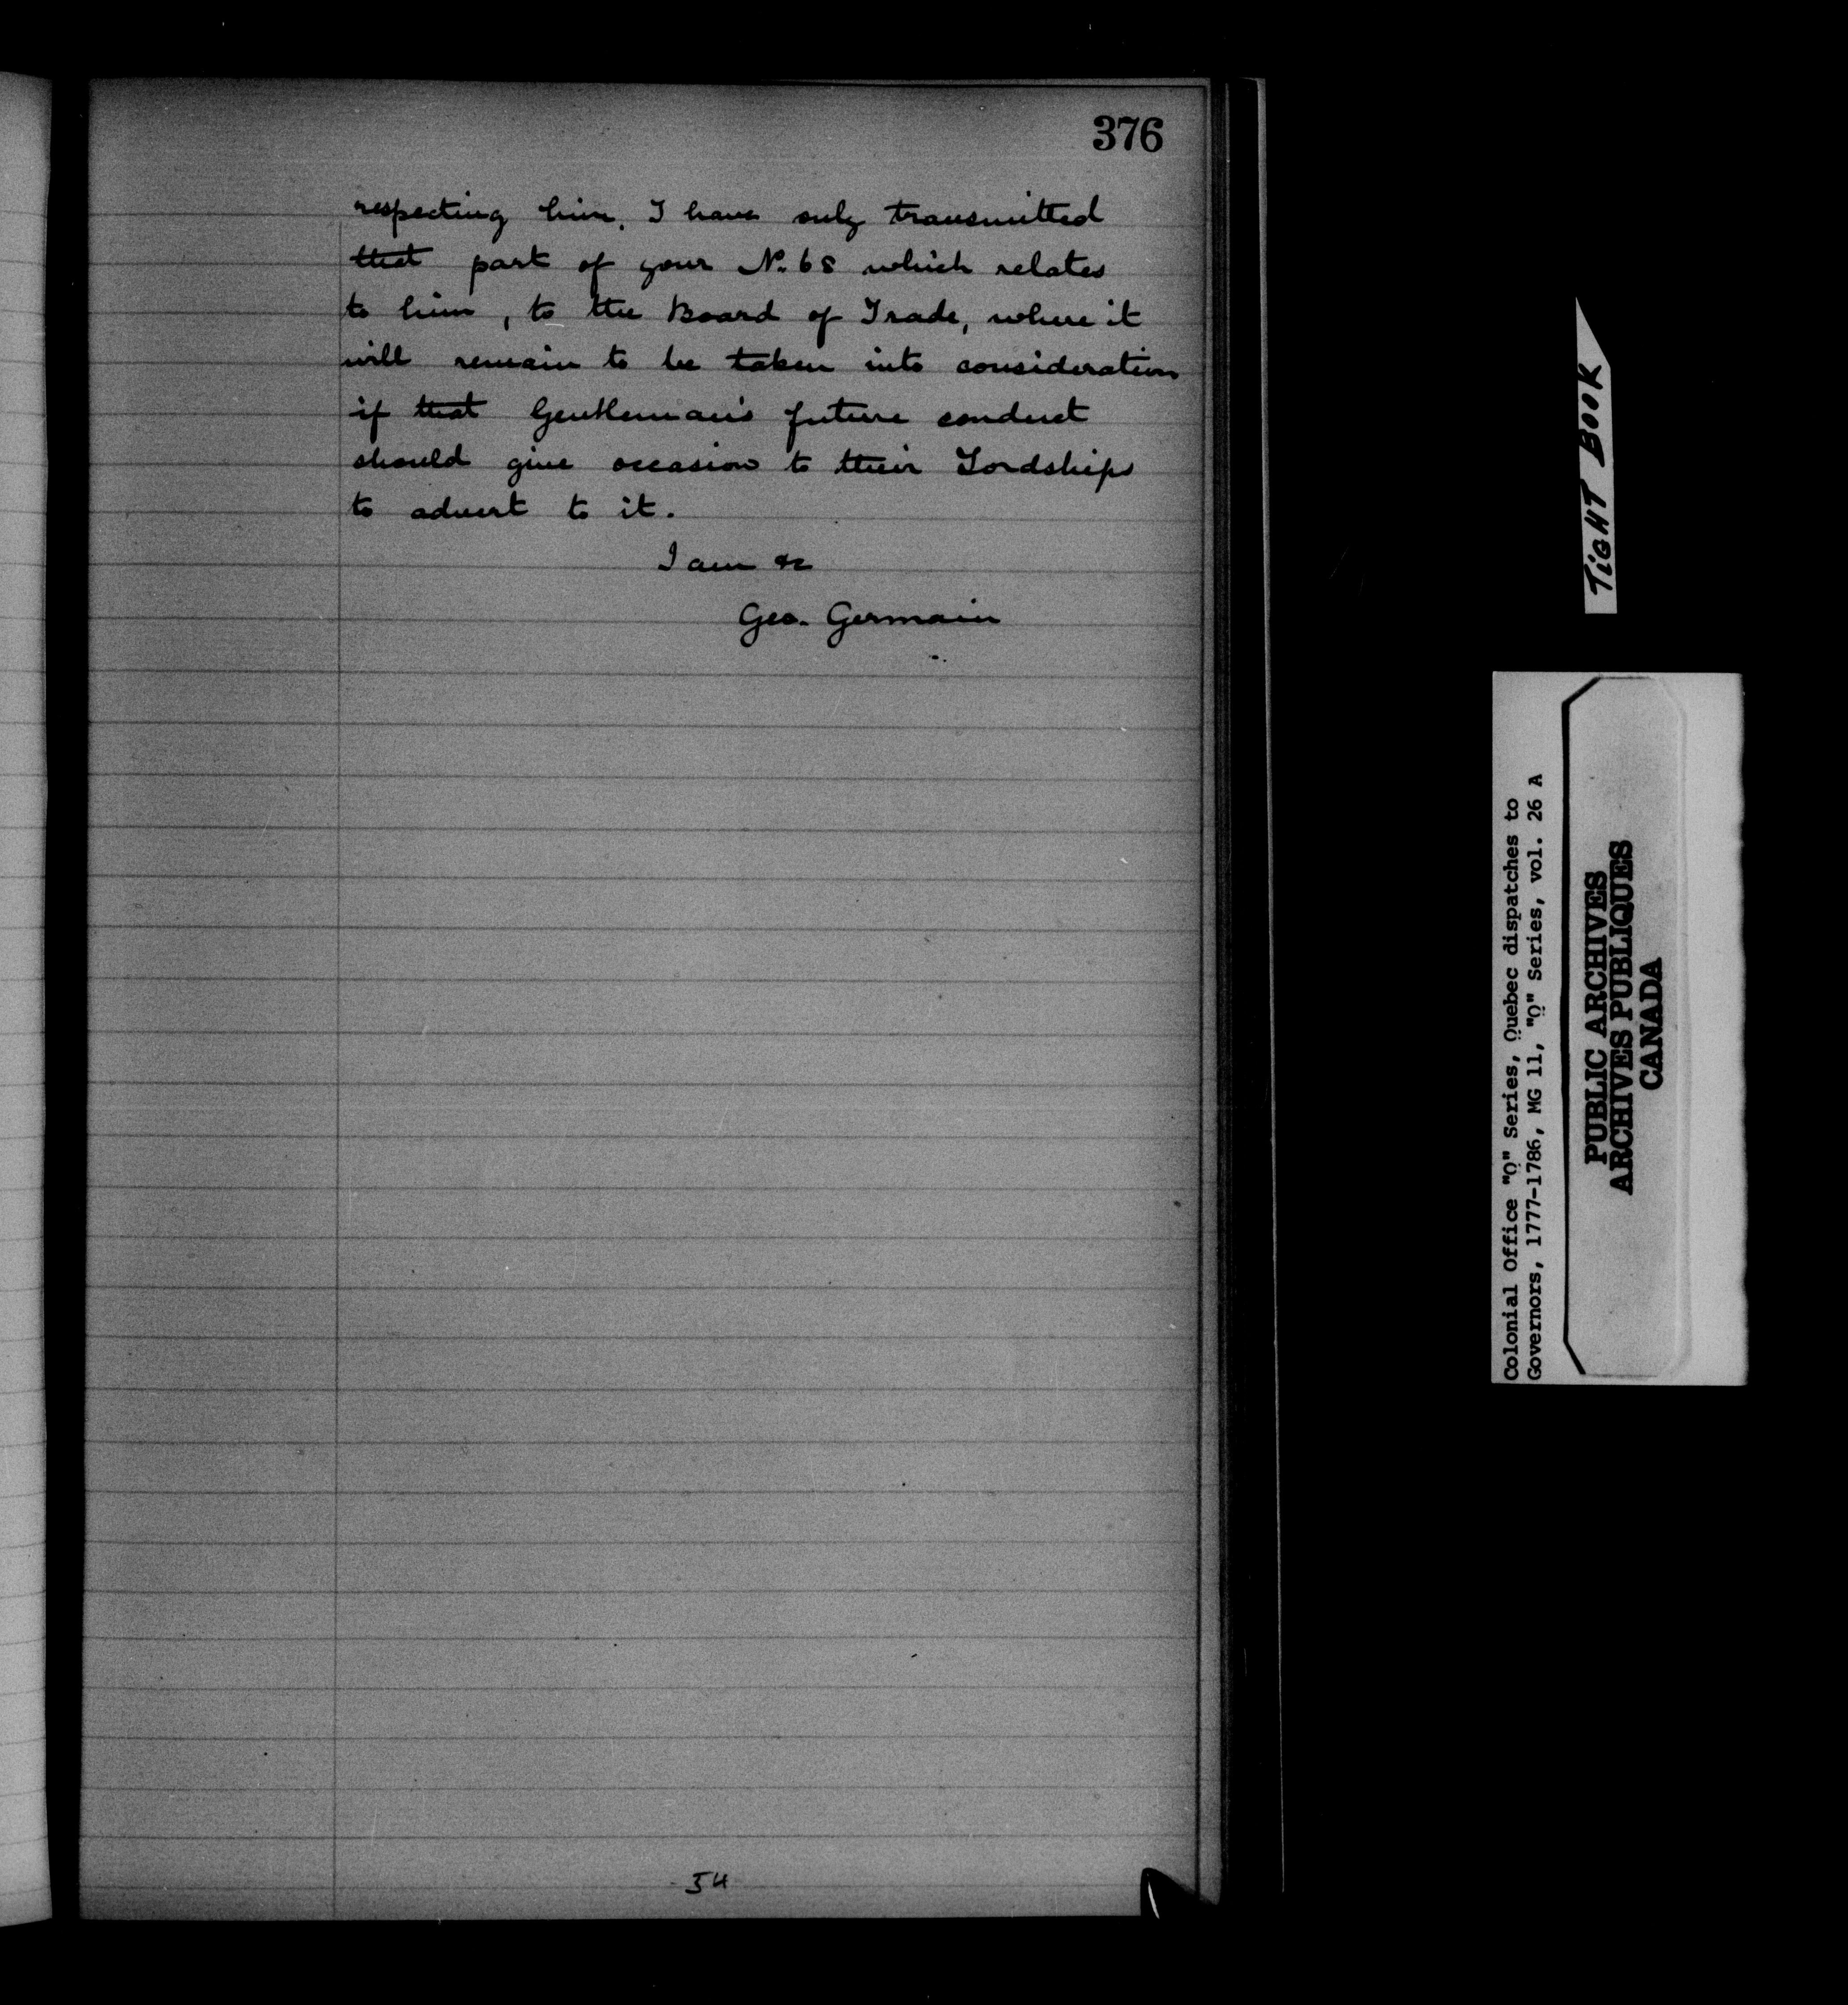 376
respecting him, I have only transmitted
that part of your No. 68 which relates
to him, to the Board of Trade, where it
will remain to be taken into consideration
if that Gentleman's future conduct
should give occasion to their Lordships
to advert to it.
I am &c
Geo. Germain
54
TIGHT BOOK
Colonial Office "Q" Series, Quebec dispatches to
Governors, 1777-1786, MG 11, "Q" Series, vol. 26 A
PUBLIC ARCHIVES
ARCHIVES PUBLIQUES
CANADA